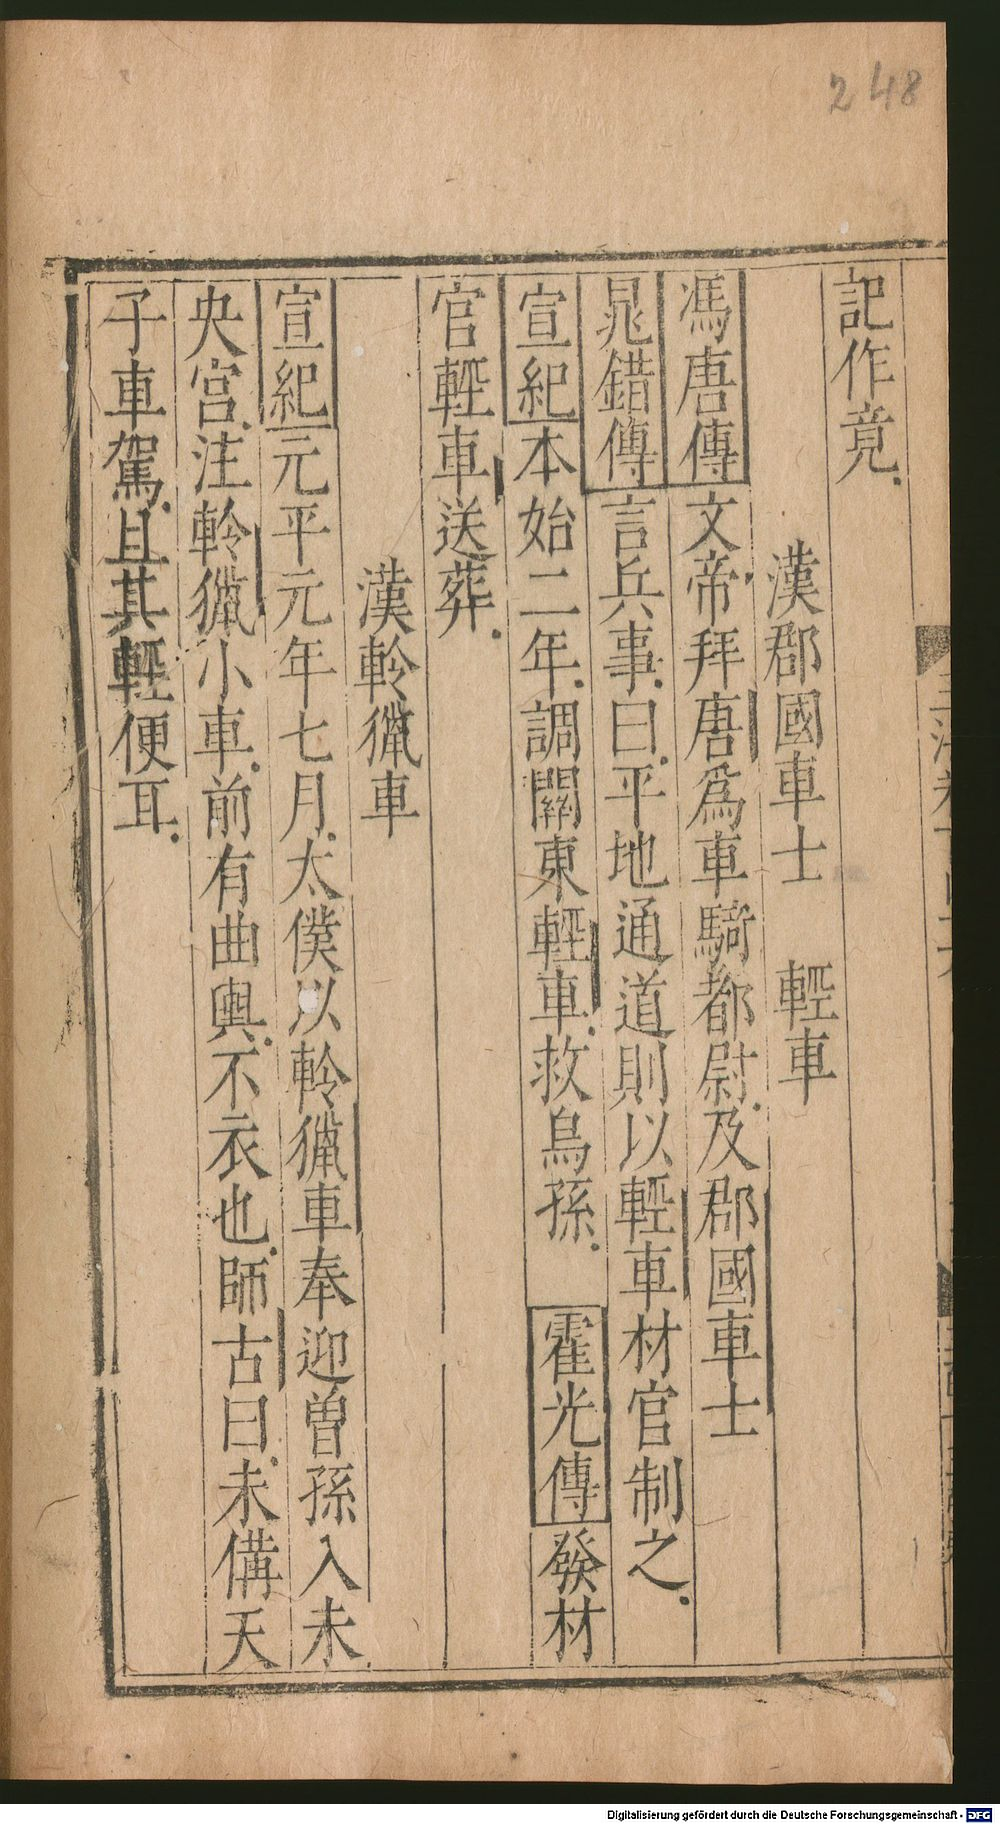 248
記作竟.
漢郡國車士　輕車
馮唐傳文帝拜唐為車騎都尉.及郡國車士
晁錯傳言兵事.曰.平地通道則以輕車材官制之.
宣紀本始二年.調關東輕車.救烏孫.　霍光傳發材
官輕車送葬.
漢軨獵車
宣紀元平元年七月.太僕以軨獵車奉迎曾孫入未
央宮.注軨獵小車.前有曲輿.不衣也.師古曰.未備天
子車駕.且其輕便耳.
Digitalisierung gefördert durch die Deutsche Forschungsgemeinschaft - DFG